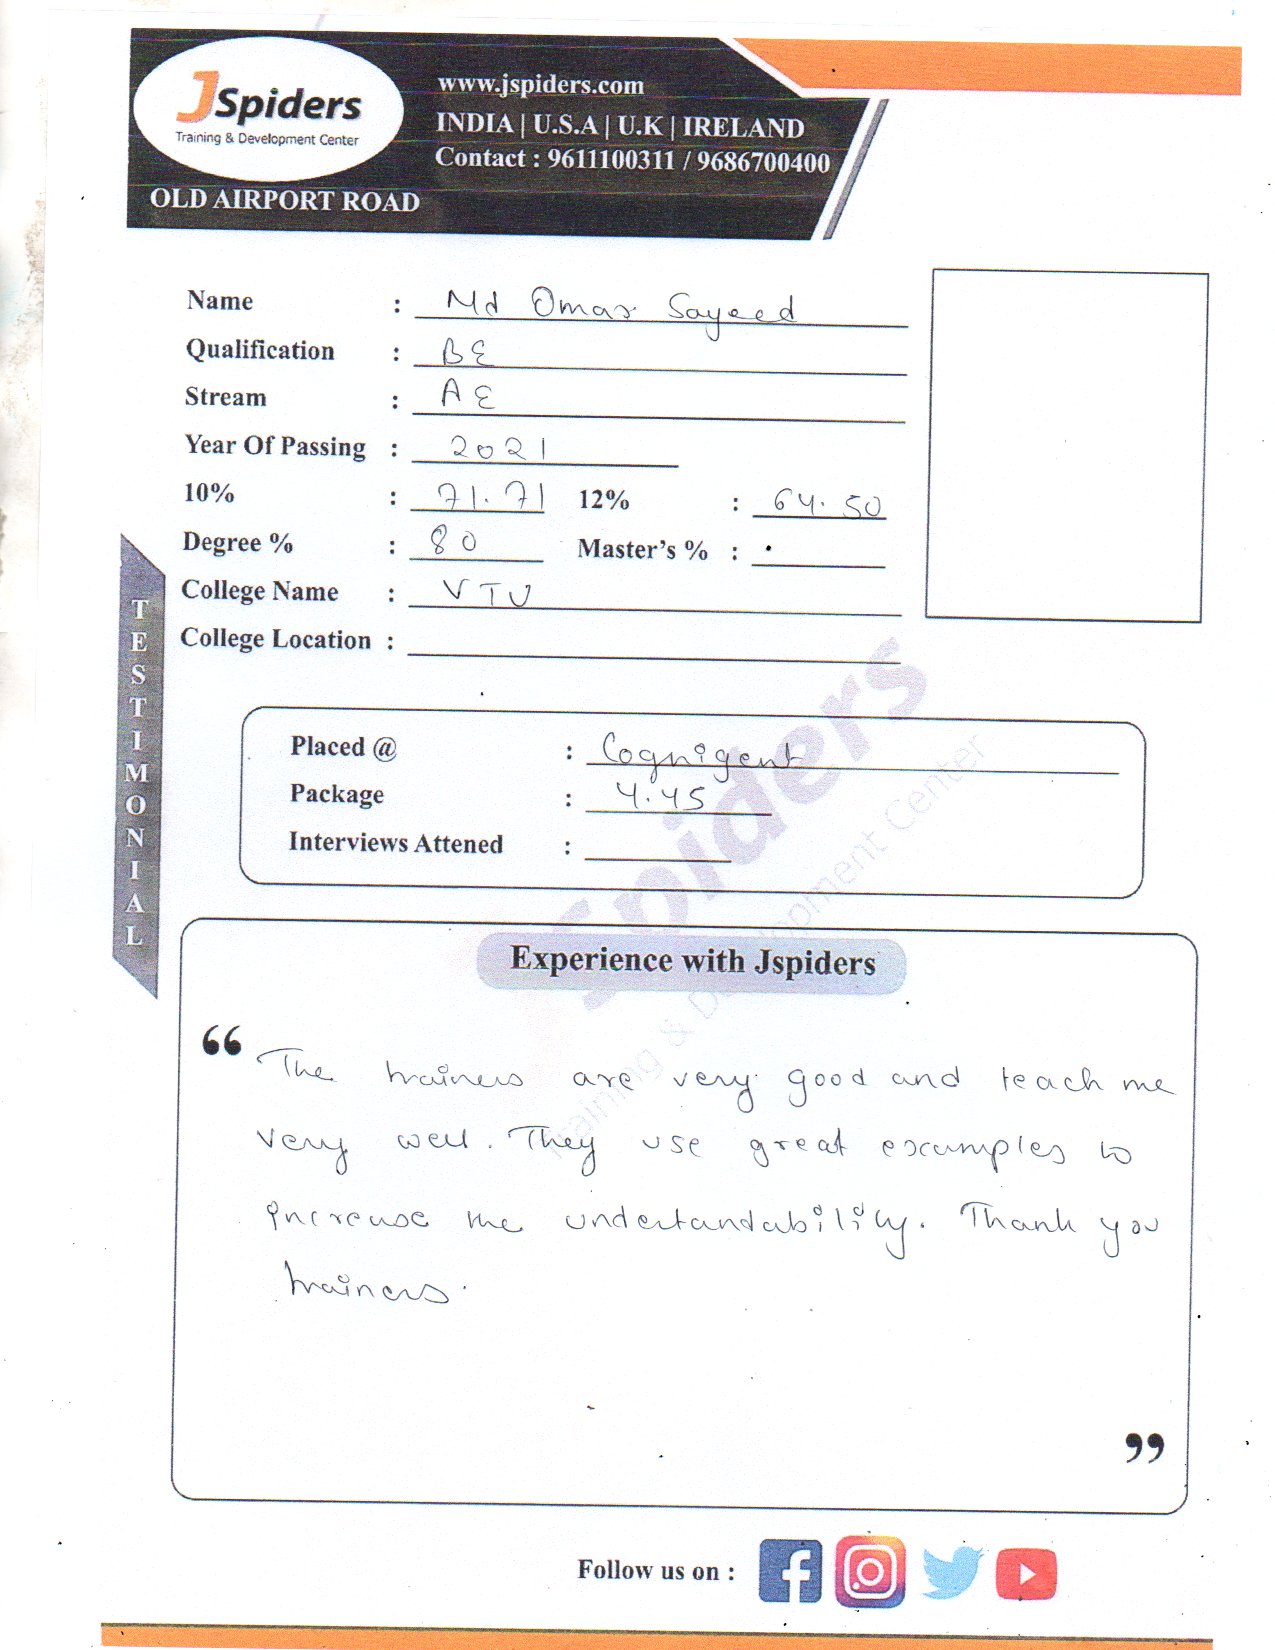 JSpiders
Training & Development Center
OLD AIRPORT ROAD
www.jspiders.com
INDIA | U.S.A | U.K | IRELAND
Contact : 9611100311 / 9686700400
Name : Md Omar Sayeed
Qualification : BE
Stream : AE
Year Of Passing : 2021
10% : 71.71 12% : 64.50
Degree % : 80 Master's % :
College Name : VTU
College Location :
TESTIMONIAL
Placed @ : Cognigent
Package : 4.45
Interviews Attened :
Spiders
Training & Development Center
Experience with Jspiders
“ The trainers are very good and teach me
very well. They use great examples to
increase the undertandability. Thank you
trainers. ”
Follow us on :